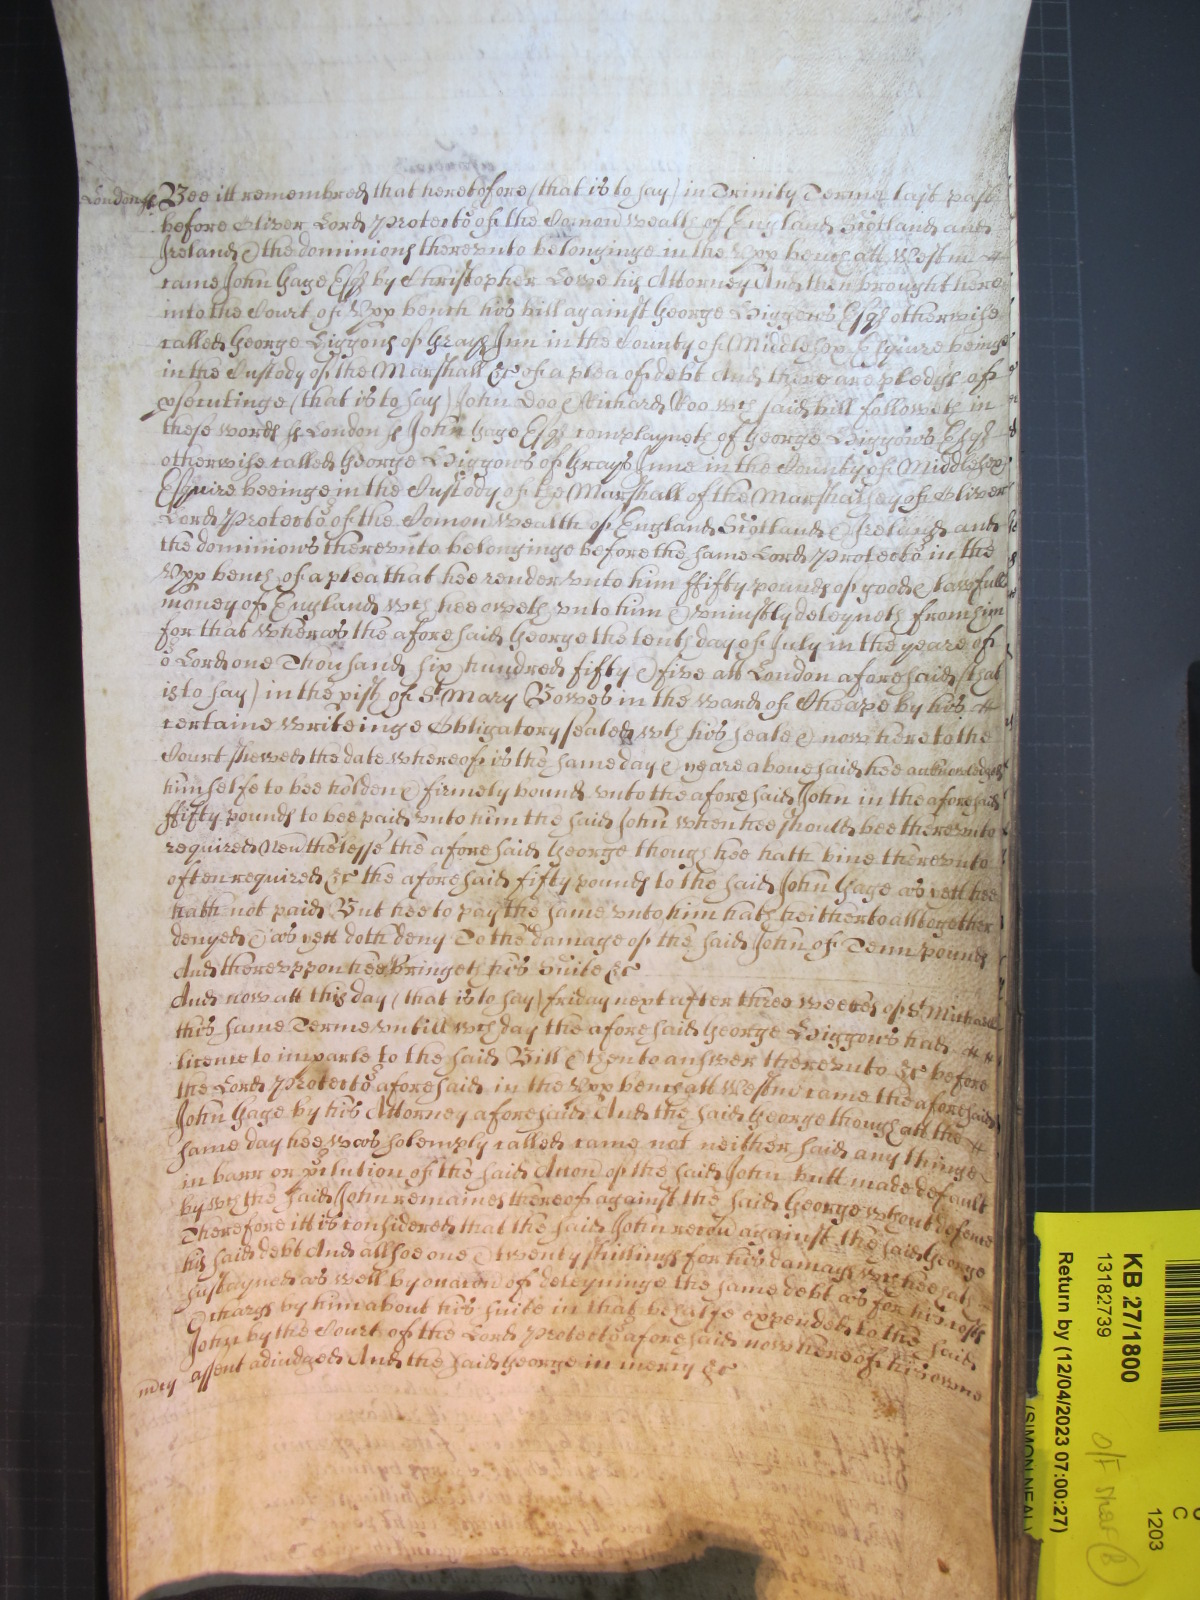 London ss Bee itt remembred that heretofore (that is to say) in Trinity Terme last past
before Oliver Lord Protector of the Comon wealth of England Scotland and
Ireland & the dominions therevnto belonginge in the Vpp bench att Westm
came John Gage Esqr by Christopher Lowe his Attorney And then brought here
into the Court of Vpp bench his bill against George Higgons Esqr otherwise
called George Higgons of Grays Inn in the County of Middlesex Esquire beinge
in the Custody of the Marshall &c of a plea of debt And there are pledgs of
psecutinge (that is to say) John Doo & Richard Roo wch said bill followeth in
these words ss London ss John Gage Esqr complayneth of George Higgons Esqr
otherwise called George Higgons of Grays Inne in the County of Middlesex
Esquire beeinge in the Custody of the Marshall of the Marshalsey of Oliver
Lord Protector of the Comon wealth of England Scotland & Ireland and
the dominions therevnto belonginge before the same Lord Protector in the
Vpp bench of a plea that hee render vnto him ffifty pounds of good & lawfull
money of England wch hee oweth vnto him & vniustly deteyneth from him
for that wheras the aforesaid George the tenth day of July in the yeare of
or Lord one Thousand six hundred fifty & five att London aforesaid (that
is to say) in the pish of St Mary Bowes in the ward of Cheape by his
certaine writeinge Obligatory sealed wth his seale & now here to the
Court shewed the date whereof is the same day & yeare abouesaid hee acknowledged
himselfe to bee holden & firmely bound vnto the aforesaid John in the aforesaid
ffifty pounds to bee paid vnto him the said John when hee should bee therevnto
required Neuthelesse the aforesaid George though hee hath bine therevnto
often required &c the aforesaid fifty pounds to the said John Gage as yett hee
hath not paid But hee to pay the same vnto him hath heitherto altogether
denyed & as yett doth deny To the damage of the said John of Tenn pounds
And therevppon hee Bringeth his Suite &c
And now att this day (that is to say) friday next after three weekes of St Michaell
this same Terme vntill wch day the aforesaid George Higgons had
licence to imparle to the said Bill & then to answer therevnto &c before
the Lord Protector aforesaid in the Vpp bench att Westmr came the aforesaid
John Gage by his Attorney aforesaid And the said George though att the
same day hee was solemply called came not neither said any thinge
in barr or pclution of the said Accon of the said John butt made default
by wch the said John remaines thereof against the said George wthout defence
Therefore itt is considered that the said John recou against the said George
his said debt And allsoe one & twenty shillings for his damags wch hee hath
sustayned as well by occacon of deteyninge the same debt as for his costs
& chargs by him about his suite in that behalfe expended to the said
John by the Court of the Lord Protector aforesaid now here of his owne
mcy assent adiudged And the said George in mercy &c
KB 27/1800
13182739
Return by (12/04/2023 07:00:27)
(SIMON NEAL)
1203
C